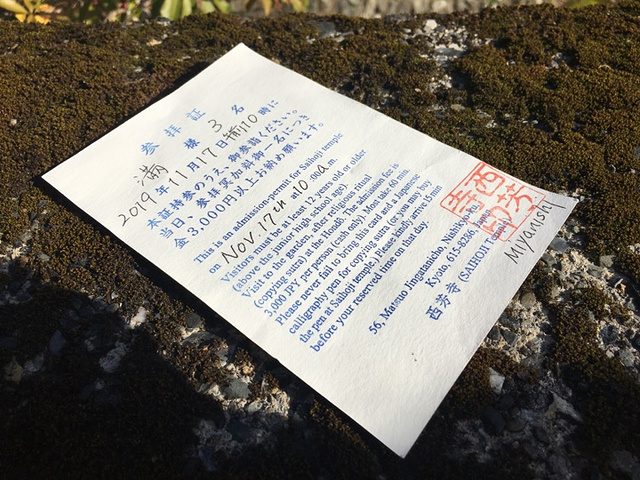 参拝証
満 様 3 名
2019 年 11 月 17 日 午前 10 時に
本証持参のうえ、御参詣ください。
当日、参拝冥加料御一名につき
金 3,000円以上お納め願います。
This is an admission-permit for Saihoji temple
on Nov. 17th at 10:00 a.m.
Visitors must be at least 12 years old or older
(above the junior high school age).
Visit to the garden, after religious ritual
(copying sutra) at the Hondō. The admission fee is
3,000 JPY per person (cash only). Most take 60 min
Please never fail to bring this card and a Japanese
calligraphy pen for copying sutra (or you may buy
the pen at Saihoji temple.) Please kindly arrive 15 min
before your reserved time on that day.
56, Matsuo Jingatanicho, Nishikyo-ku
Kyoto, 615-8286, Japan
西芳寺 (SAIHOJI Temple)
西芳寺印
Miyanishi